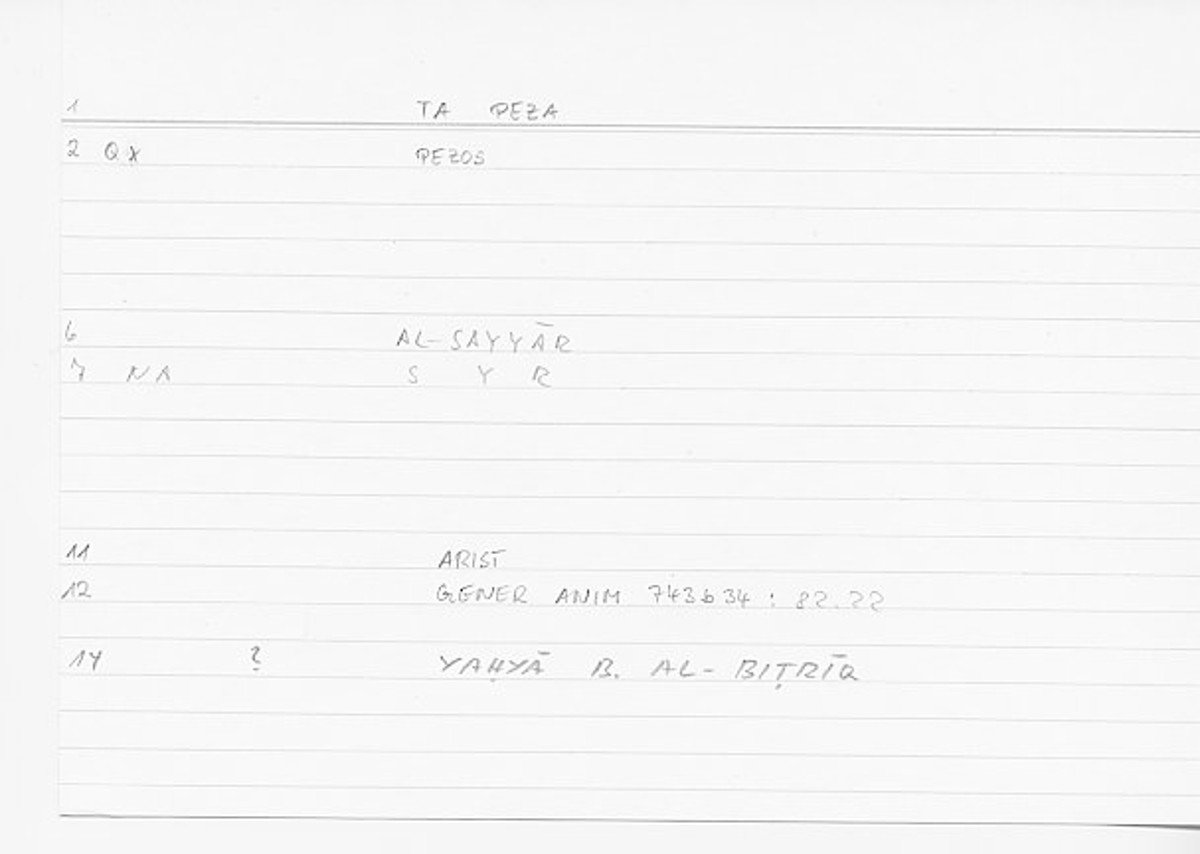 1 TA PEZA
2 QX PEZOS
6 AL-SAYYĀR
7 NA S Y R
11 ARIST
12 GENER ANIM 743b34 : 82.22
14 ? YAḤYĀ B. AL-BIṬRĪQ